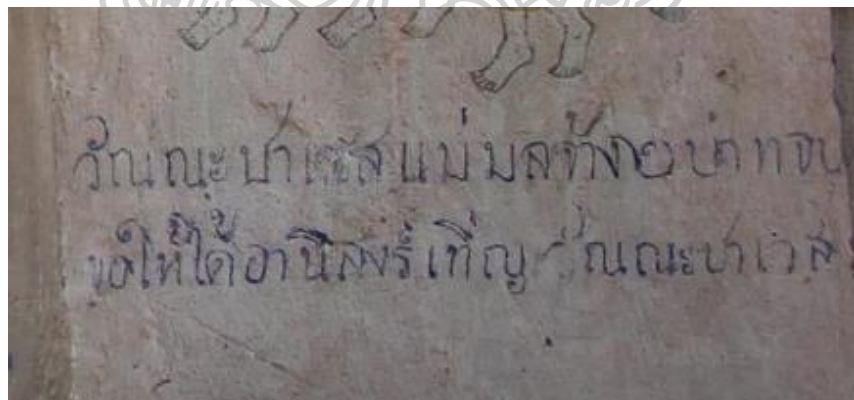 วัณณะปาเวสแม่มลจ้างอยปกทอน
ขอให้ได้อานิสงร์เทิญ วัณณะปาเวส